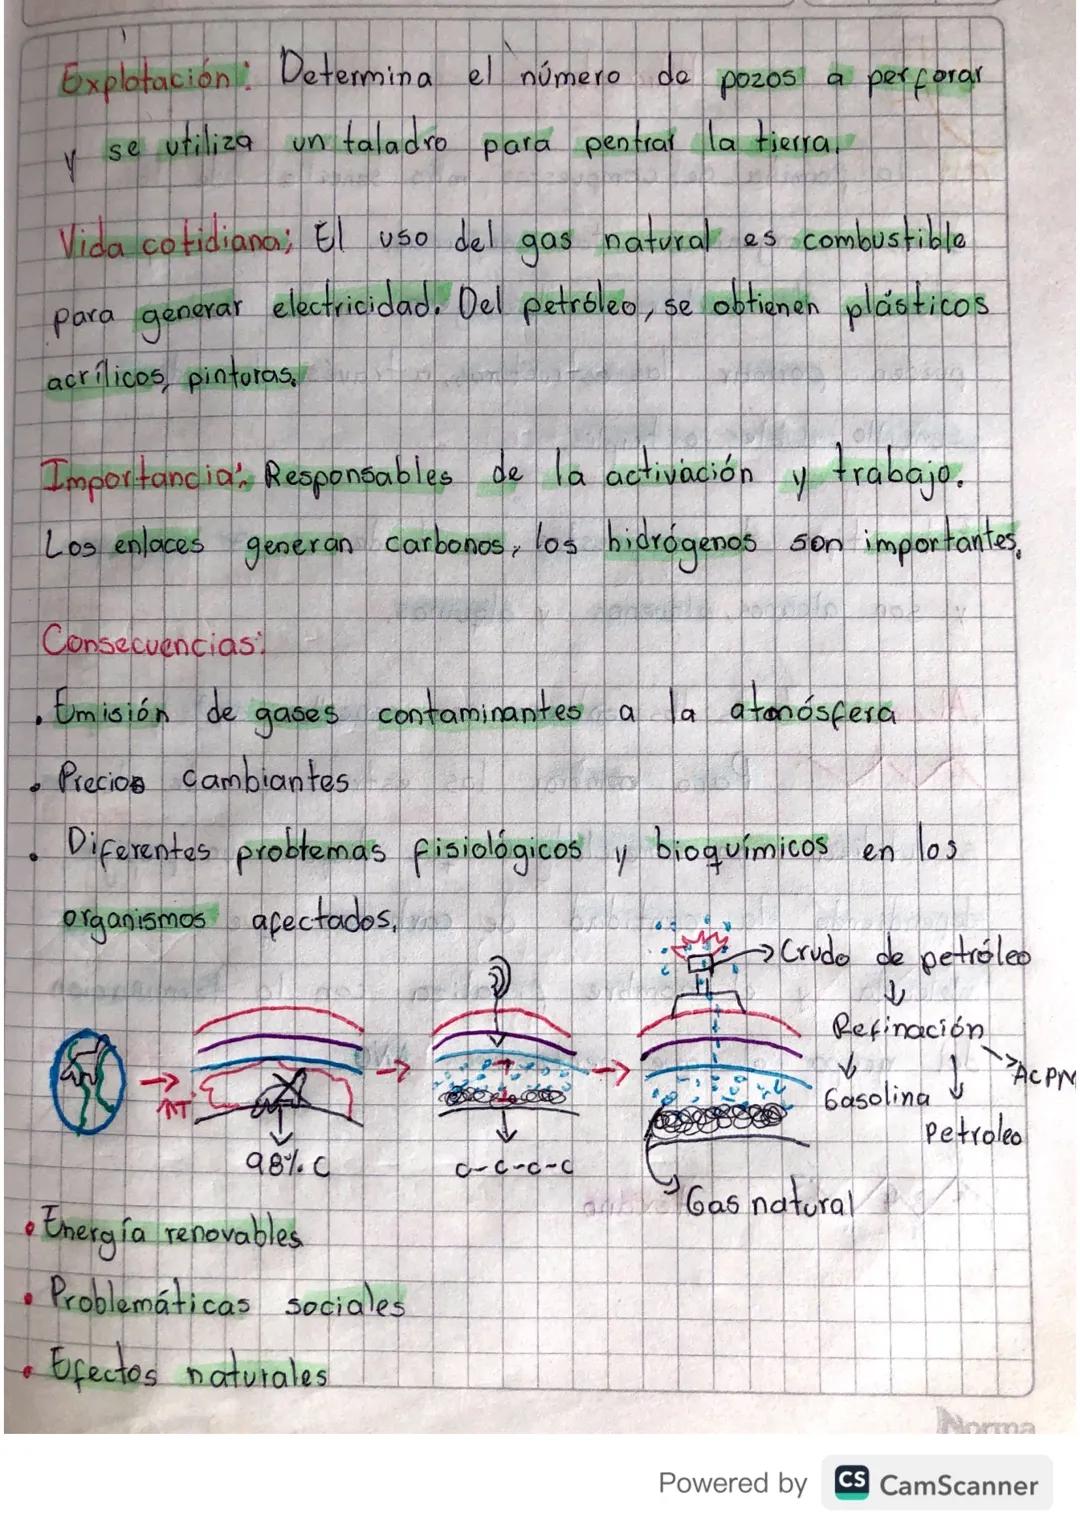 Explotación: Determina el número de pozos a perforar
y se utiliza un taladro para pentrar la tierra.
Vida cotidiana; El uso del gas natural es combustible
para generar electricidad. Del petróleo, se obtienen plásticos
acrílicos, pinturas.
Importancia: Responsables de la activación y trabajo.
Los enlaces generan carbonos, los hidrógenos son importantes.
Consecuencias:
• Emisión de gases contaminantes a la atmósfera
• Precios cambiantes
• Diferentes problemas fisiológicos y bioquímicos en los
organismos afectados.
Crudo de petróleo
Refinación
ACPM
Gasolina
Petroleo
↑T
98% C
C-C-C-C
Gas natural
• Energía renovables
• Problemáticas sociales
• Efectos naturales
Norma
Powered by CS CamScanner